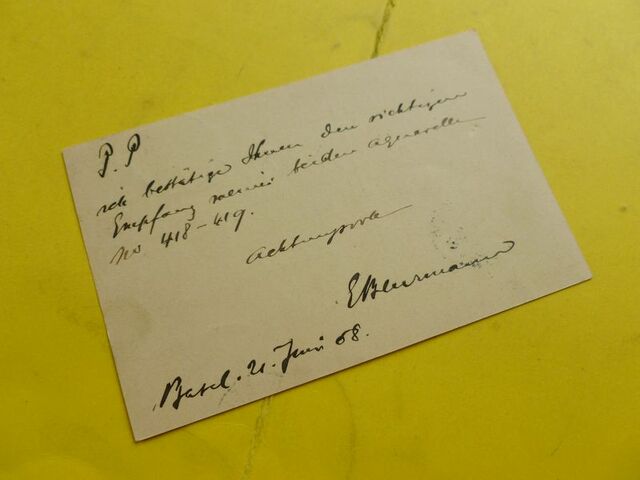 P. P
ich bestätige Ihnen den richtigen
Empfang meiner beiden Aquarelle
No 418-419.
Achtungsvoll
Basel. 21. Juni 08.